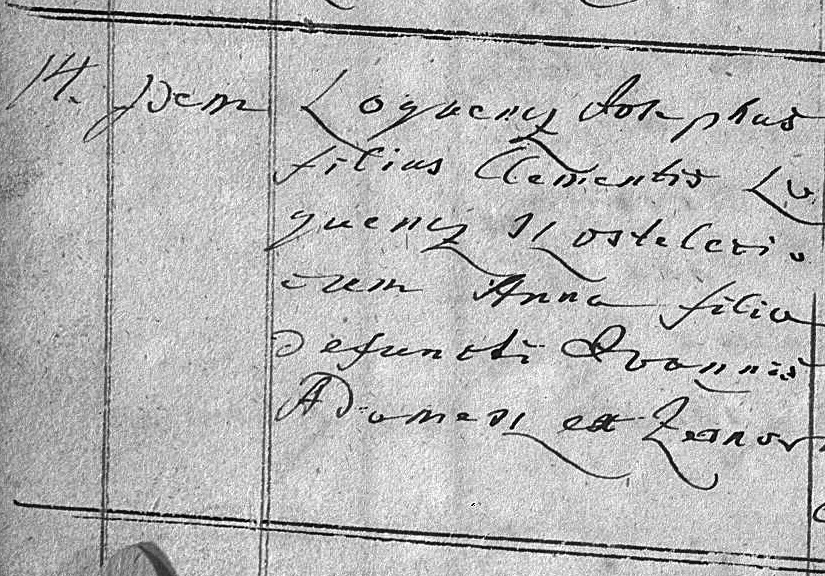 14. Idem Loquenz Josephus
filius Clementis Lo
quenz Kostelecio
cum Anna filia
defuncti Joannis
Adamesk ex